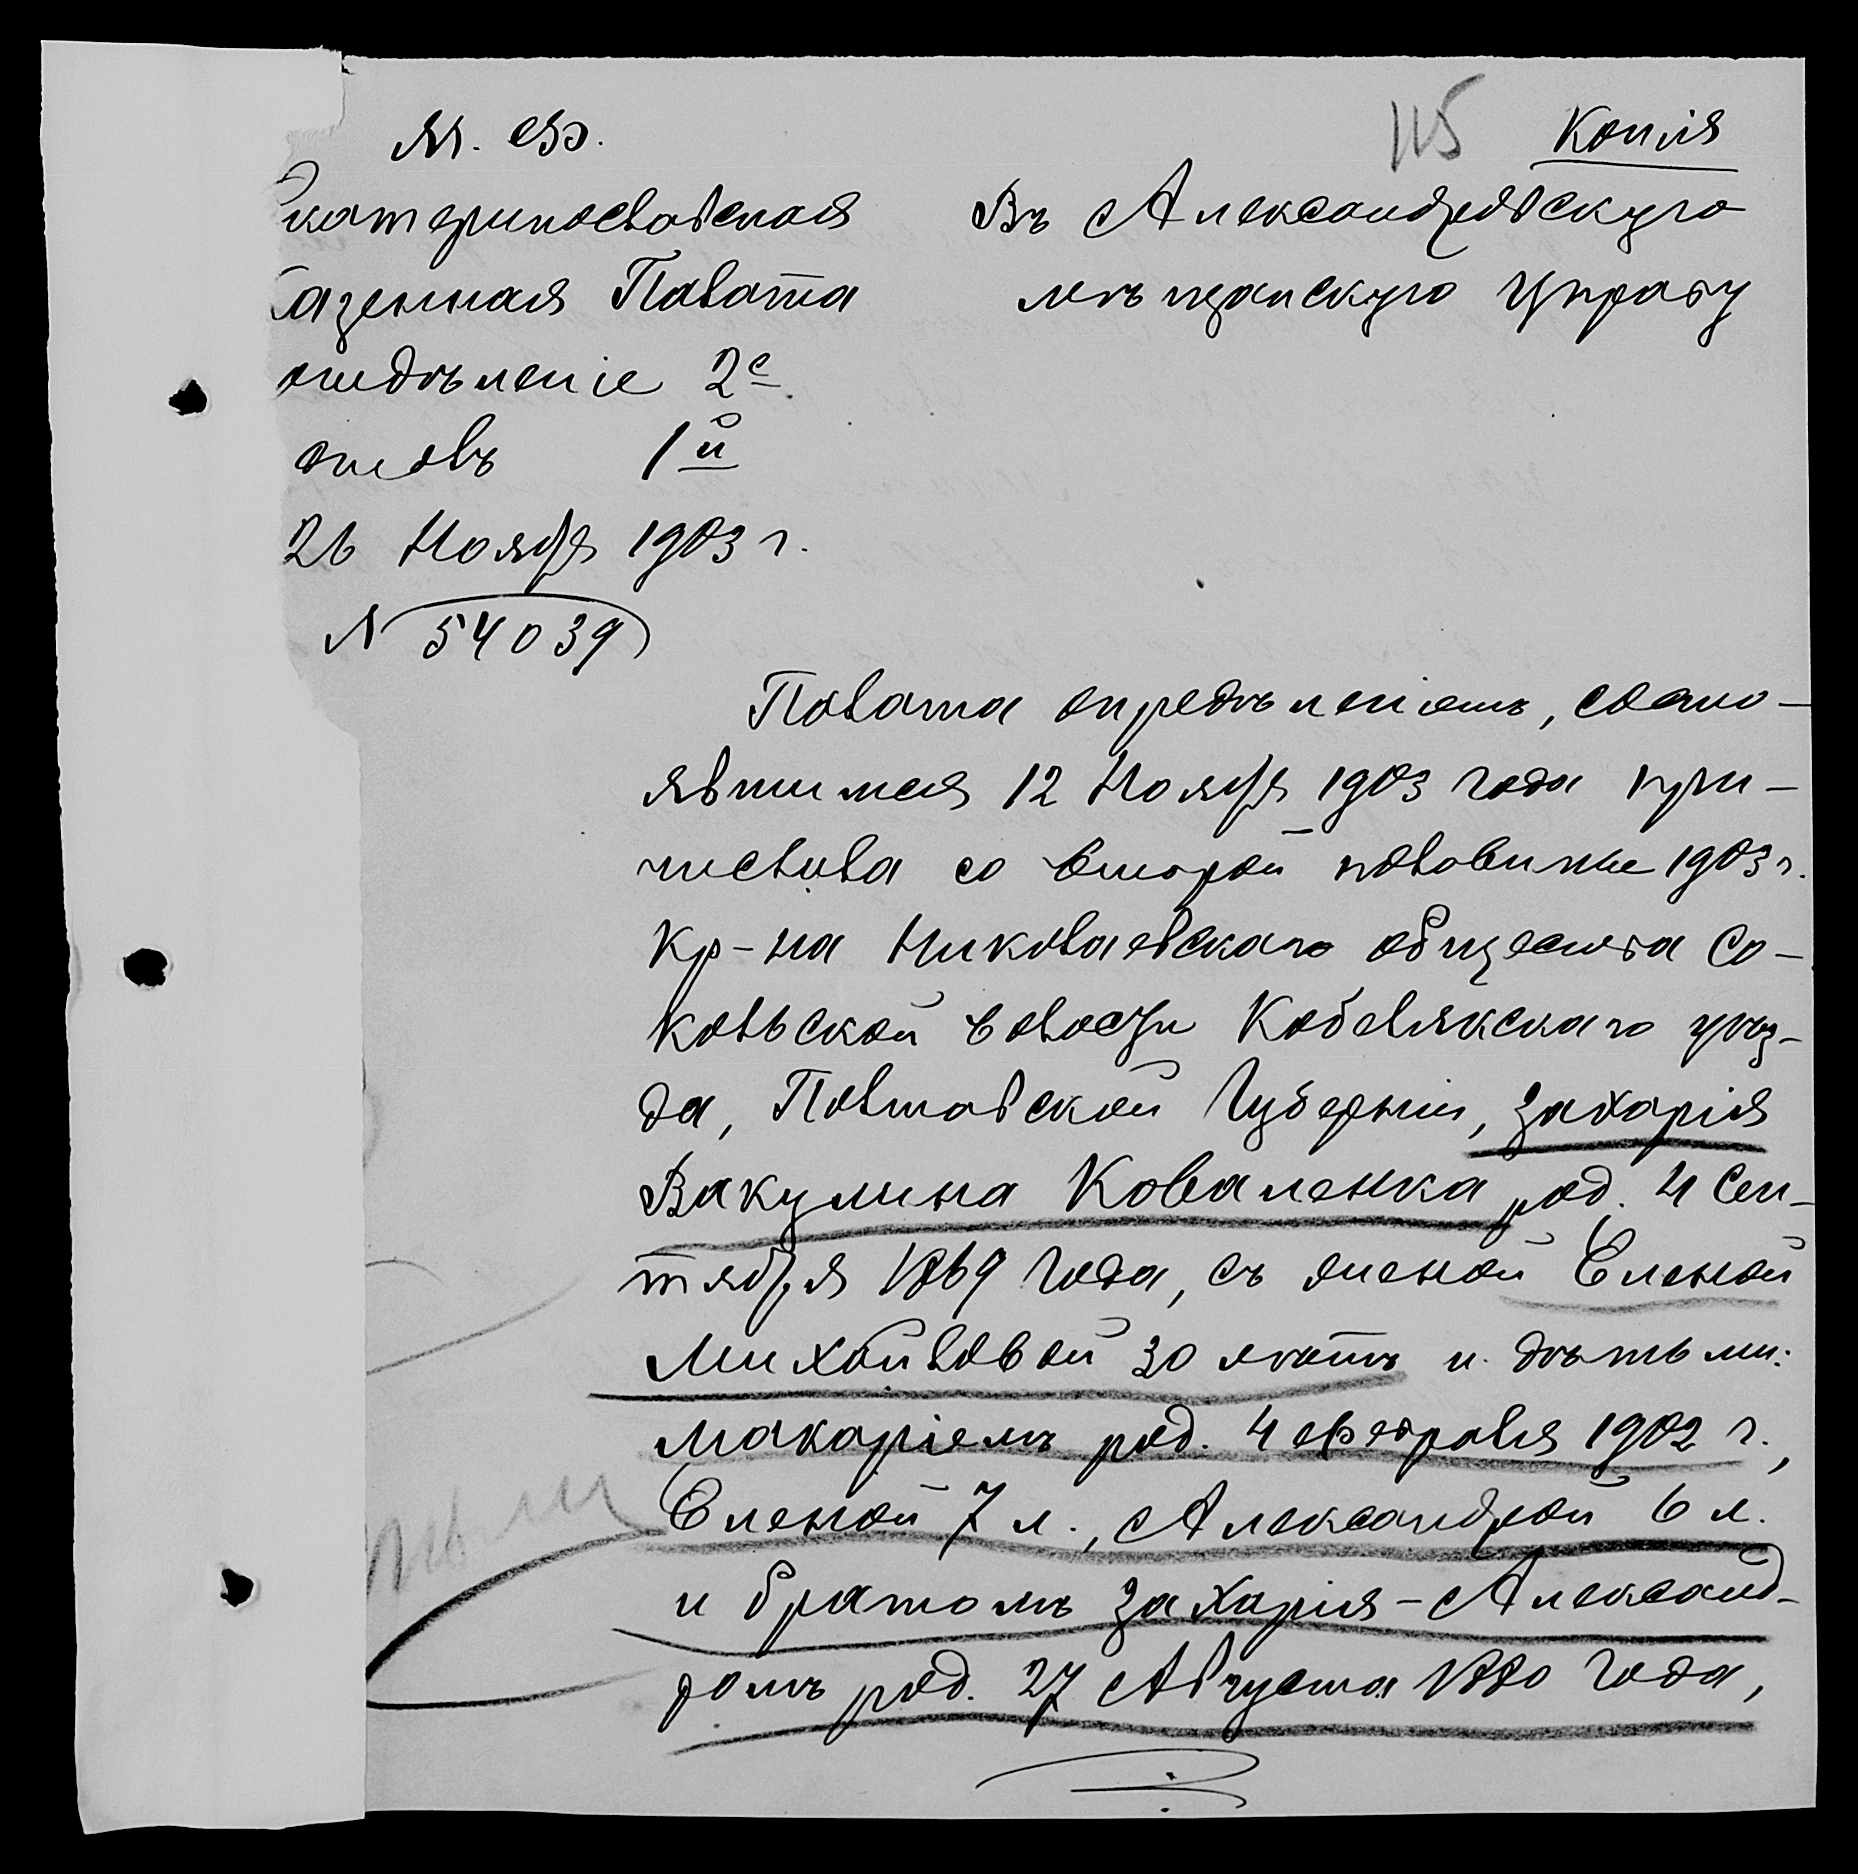 М. Ф.
Екатеринославская
Казенная Палата
отдѣленіе 2е
столъ 1й
26 Ноября 1903 г.
№ 54039
115 Копія
Въ Александровскую
мѣщанскую Управу
Палата опредѣленіемъ, состо-
явшимся 12 Ноября 1903 года при-
числила со второй половины 1903 г.
Кр-на Николаевскаго общества Со-
кольской волости Кобелякскаго уѣз-
да, Полтавской Губерніи, Захарія
Вакулина Коваленка род. 4 Сен-
тября 1869 года, съ женой Еленой
Михайловой 30 лѣтъ и дѣтьми:
Макаріемъ род. 4 февраля 1902 г.,
Еленой 7 л., Александрой 6 л.
и братомъ Захарія - Александ-
ромъ род. 27 Августа 1880 года,